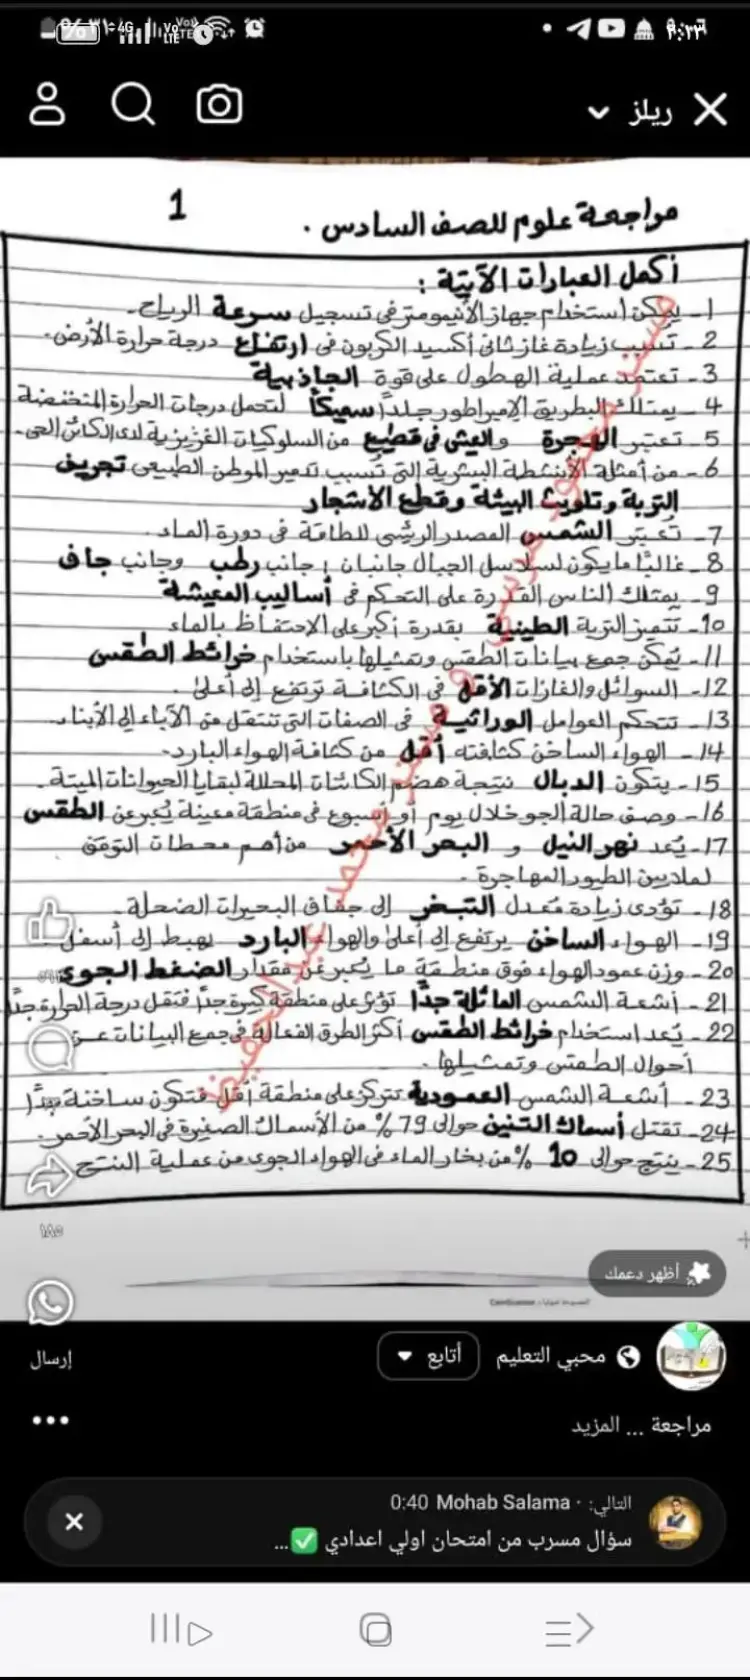 ريلز
مراجعة علوم للصف السادس .
1
أكمل العبارات الآتية :
1- يمكن استخدام جهاز الأنيمومتر في تسجيل سرعة الرياح.
2- تسبب زيادة غاز ثاني أكسيد الكربون في ارتفاع درجة حرارة الأرض.
3- تعتمد عملية الهطول على قوة الجاذبية
4- يمتلك البطريق الإمبراطور جلداً سميكاً لتحمل درجات الحرارة المنخفضة
5- تعتبر الهجرة والعيش في قطيع من السلوكيات الغريزية لدى الكائن الحي.
6- من أمثلة الأنشطة البشرية التي تسبب تدمير الموطن الطبيعي تجريف
التربة وتلويث البيئة وقطع الأشجار
7- تُعتبر الشمس المصدر الرئيسي للطاقة في دورة الماء.
8- غالباً ما يكون لسلاسل الجبال جانبان ؛ جانب رطب وجانب جاف
9- يمتلك الناس القدرة على التحكم في أساليب المعيشة
10- تتميز التربة الطينية بقدرة أكبر على الاحتفاظ بالماء
11- يُمكن جمع بيانات الطقس وتمثيلها باستخدام خرائط الطقس
12- السوائل والغازات الأقل في الكثافة ترتفع إلى أعلى.
13- تتحكم العوامل الوراثية في الصفات التي تنتقل من الآباء إلى الأبناء.
14- الهواء الساخن كثافته أقل من كثافة الهواء البارد.
15- يتكون الدبال نتيجة هضم الكائنات المحللة لبقايا الحيوانات الميتة.
16- وصف حالة الجو خلال يوم أو أسبوع في منطقة معينة يُعبر عن الطقس
17- يُعد نهر النيل و البحر الأحمر من أهم محطات التوقف
لملايين الطيور المهاجرة.
18- تؤدى زيادة مُعدل التبخر إلى جفاف البحيرات الضحلة.
19- الهواء الساخن يرتفع إلى أعلى والهواء البارد يهبط إلى أسفل
20- وزن عمود الهواء فوق منطقة ما يُعبر عن مقدار الضغط الجوي
21- أشعة الشمس المائلة جداً تؤثر على منطقة كبيرة جداً فتقل درجة الحرارة جداً
22- يُعد استخدام خرائط الطقس أكثر الطرق الفعالة في جمع البيانات عن
أحوال الطقس وتمثيلها.
23- أشعة الشمس العمودية تتركز على منطقة أقل فتكون ساخنة جداً
24- تقتل أسماك التنين حوالى 79% من الأسماك الصغيرة في البحر الأحمر.
25- ينتج حوالى 10 % من بخار الماء في الهواء الجوى من عملية النتح
١٨٥
أظهر دعمك
محبي التعليم
أتابع
إرسال
مراجعة ... المزيد
التالي: · Mohab Salama 0:40
سؤال مسرب من امتحان اولي اعدادي ✅...